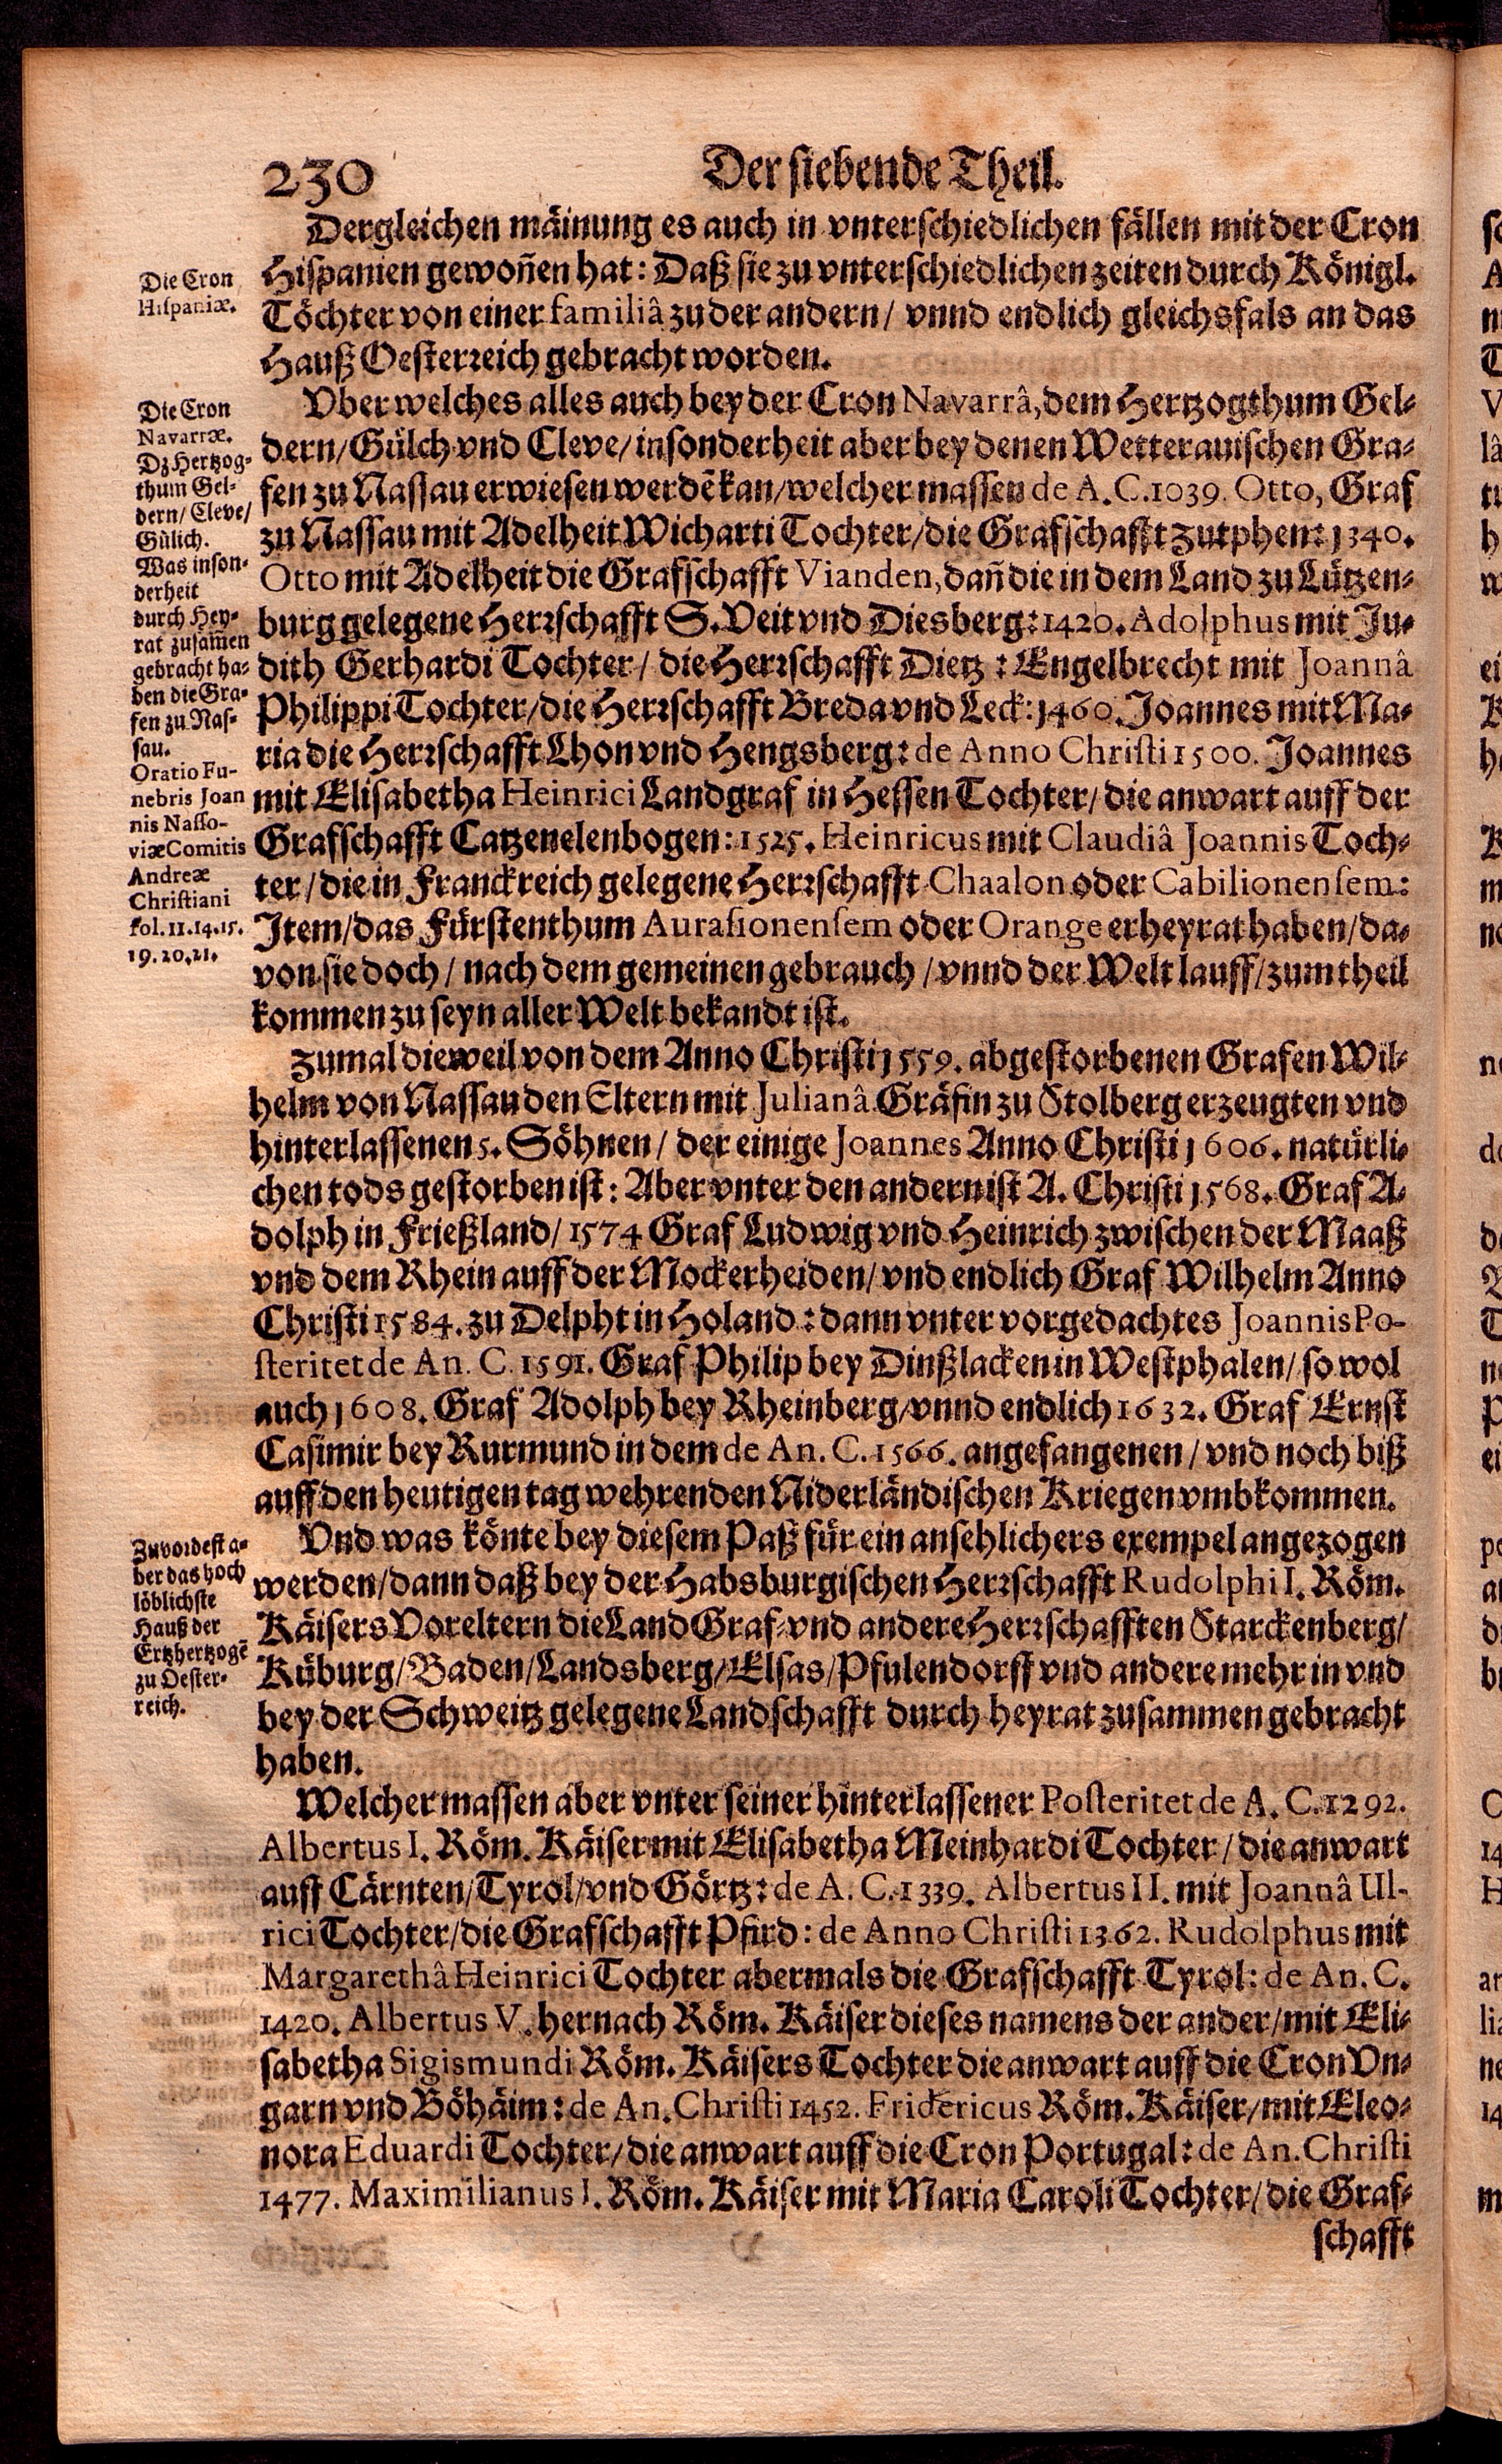 230
Der siebende Theil.
Dergleichen mäinung es auch in vnterschiedlichen fällen mit der Cron
Hispanien gewoñen hat: Daß sie zu vnterschiedlichen zeiten durch Königl.
Töchter von einer familiâ zu der andern/ vnnd endlich gleichsfals an das
Hauß Oesterreich gebracht worden.
Die Cron
Hispaniæ.
Vber welches alles auch bey der Cron Navarrâ, dem Hertzogthum Gel-
dern/ Gülch vnd Cleve/ insonderheit aber bey denen Wetterauischen Gra-
fen zu Nassau erwiesen werdē kan/ welcher massen de A. C. 1039. Otto, Graf
zu Nassau mit Adelheit Wicharti Tochter/ die Grafschafft Zutphen: 1340.
Otto mit Adelheit die Grafschafft Vianden, dañ die in dem Land zu Lützen-
burg gelegene Herrschafft S. Veit vnd Diesberg: 1420. Adolphus mit Ju-
dith Gerhardi Tochter/ die Herrschafft Dietz: Engelbrecht mit Joannâ
Philippi Tochter/ die Herrschafft Breda vnd Leck: 1460. Joannes mit Ma-
ria die Herrschafft Lhon vnd Hengsberg: de Anno Christi 1500. Joannes
mit Elisabetha Heinrici Landgraf in Hessen Tochter/ die anwart auff der
Grafschafft Catzenelenbogen: 1525. Heinricus mit Claudiâ Joannis Toch-
ter/ die in Franckreich gelegene Herrschafft Chaalon oder Cabilionensem:
Item/ das Fürstenthum Aurasionensem oder Orange erheyrat haben/ da-
von sie doch/ nach dem gemeinen gebrauch/ vnnd der Welt lauff/ zum theil
kommen zu seyn aller Welt bekandt ist.
Die Cron
Navarræ.
Dz Hertzog-
thum Gel-
dern/ Cleve/
Gülich.
Was inson-
derheit
durch Hey-
rat zusam̃en
gebracht ha-
ben die Gra-
fen zu Nas-
sau.
Oratio Fu-
nebris Joan
nis Nasso-
viæ Comitis
Andreæ
Christiani
fol. 11. 14. 15.
19. 20. 21.
Zumal dieweil von dem Anno Christi 1559. abgestorbenen Grafen Wil-
helm von Nassau den Eltern mit Julianâ Gräfin zu Stolberg erzeugten vnd
hinterlassenen 5. Söhnen/ der einige Joannes Anno Christi 1606. natürli-
chen tods gestorben ist: Aber vnter den andern ist A. Christi 1568. Graf A-
dolph in Frießland/ 1574 Graf Ludwig vnd Heinrich zwischen der Maaß
vnd dem Rhein auff der Mockerheiden/ vnd endlich Graf Wilhelm Anno
Christi 1584. zu Delpht in Holand: dann vnter vorgedachtes Joannis Po-
steritet de An. C. 1591. Graf Philip bey Dinßlacken in Westphalen/ so wol
auch 1608. Graf Adolph bey Rheinberg/ vnnd endlich 1632. Graf Ernst
Casimir bey Rurmund in dem de An. C. 1566. angefangenen/ vnd noch biß
auff den heutigen tag wehrenden Niderländischen Kriegen vmbkommen.
Vnd was könte bey diesem Paß für ein ansehlichers exempel angezogen
werden/ dann daß bey der Habsburgischen Herrschafft Rudolphi I. Röm.
Käisers Voreltern die Land Graf- vnd andere Herrschafften Starckenberg/
Küburg/ Baden/ Landsberg/ Elsas/ Pfulendorff vnd andere mehr in vnd
bey der Schweitz gelegene Landschafft durch heyrat zusammen gebracht
haben.
Zuvordest a-
ber das hoch
löblichste
Hauß der
Ertzhertzogē
zu Oester-
reich.
Welcher massen aber vnter seiner hinterlassener Posteritet de A. C. 1292.
Albertus I. Röm. Käiser mit Elisabetha Meinhardi Tochter/ die anwart
auff Cärnten/ Tyrol/ vnd Görtz: de A. C. 1339. Albertus II. mit Joannâ Ul-
rici Tochter/ die Grafschafft Pfird: de Anno Christi 1362. Rudolphus mit
Margarethâ Heinrici Tochter abermals die Grafschafft Tyrol: de An. C.
1420. Albertus V. hernach Röm. Käiser dieses namens der ander/ mit Eli-
sabetha Sigismundi Röm. Käisers Tochter die anwart auff die Cron Vn-
garn vnd Böhäim: de An. Christi 1452. Fridericus Röm. Käiser/ mit Eleo-
nora Eduardi Tochter/ die anwart auff die Cron Portugal: de An. Christi
1477. Maximilianus I. Röm. Käiser mit Maria Caroli Tochter/ die Graf-
schafft